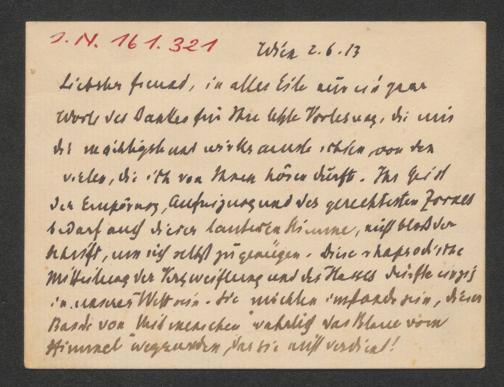 I. N. 161.321
Wien 2.6.13
Liebster Freund, in aller Eile nur ein paar
Worte des Dankes für Ihre letzte Vorlesung, die mir
die mächtigste und wirksamste schien von den
vielen, die ich von Ihnen hören durfte. Ihr Geist
der Empörung, Aufreizung und des gerechtesten Zornes
bedarf auch dieser lauteren Stimme, nicht bloß der
Schrift, um sich selbst zu genügen. Diese rhapsodische
Mitteilung der Verzweiflung und des Hasses dürfte einzig
in unserer Welt sein. Sie möchten imstande sein, dieser
Bande von Mitmenschen wahrlich das Blaue vom
Himmel wegzureden, das sie nicht verdient!